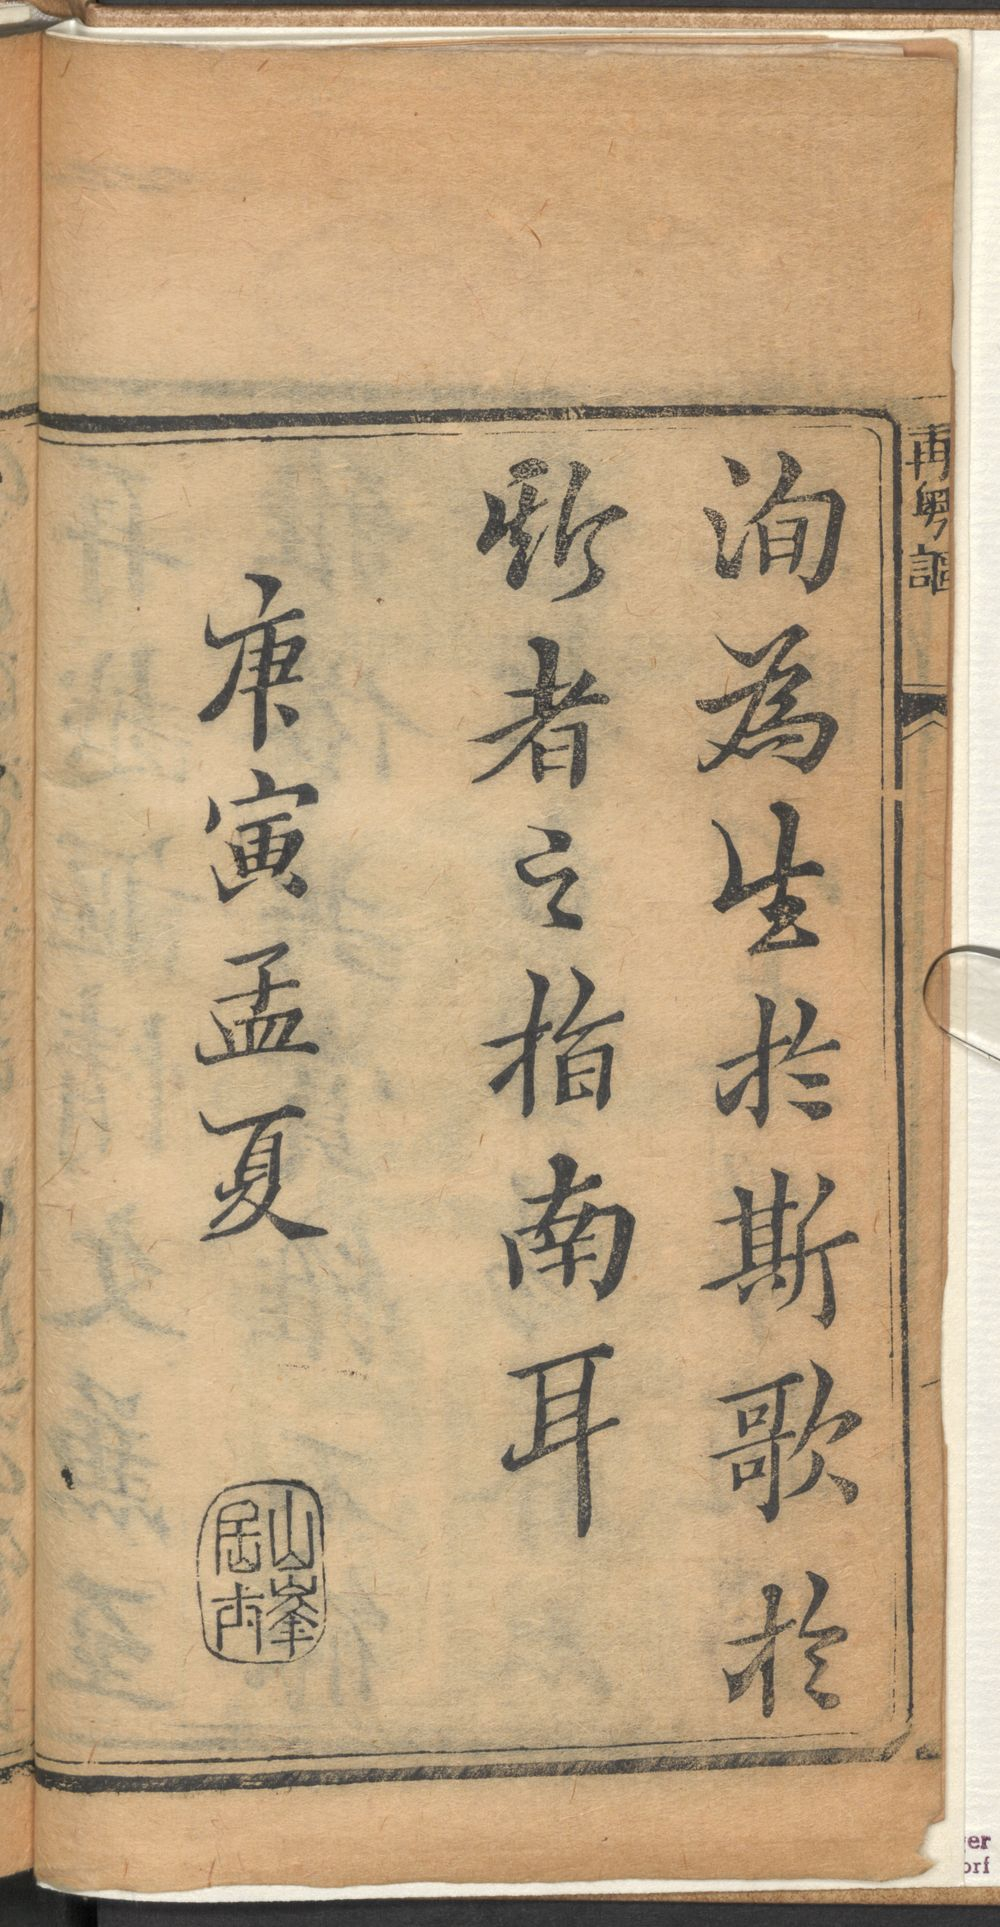 再粵謳
洵為生於斯歌於
斯者之指南耳
庚寅孟夏
山峯
er
orf